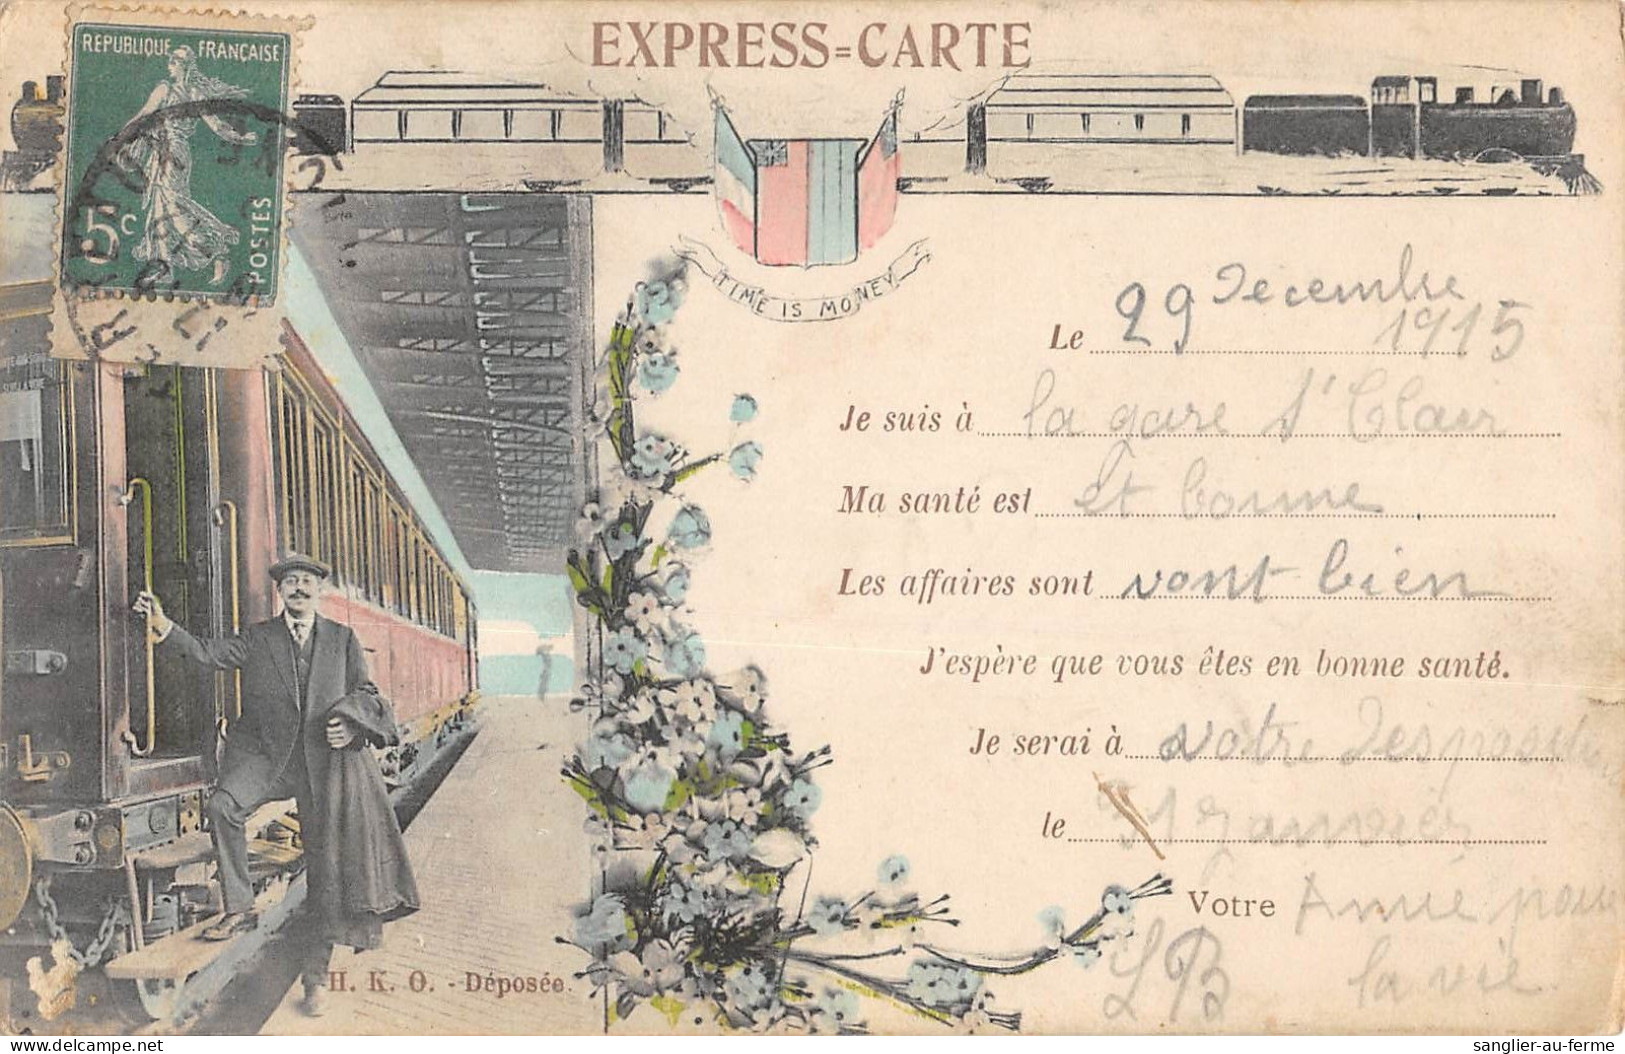 EXPRESS=CARTE
REPUBLIQUE FRANÇAISE
5c
POSTES
TIME IS MONEY
Le 29 Decembre
1915
Je suis à la gare St Clair
Ma santé est et bonne
Les affaires sont vont bien
J'espère que vous êtes en bonne santé.
Je serai à votre
le Janvier
Votre Amie pour
la vie
LB
H. K. O. - Déposée.
sanglier-au-ferme